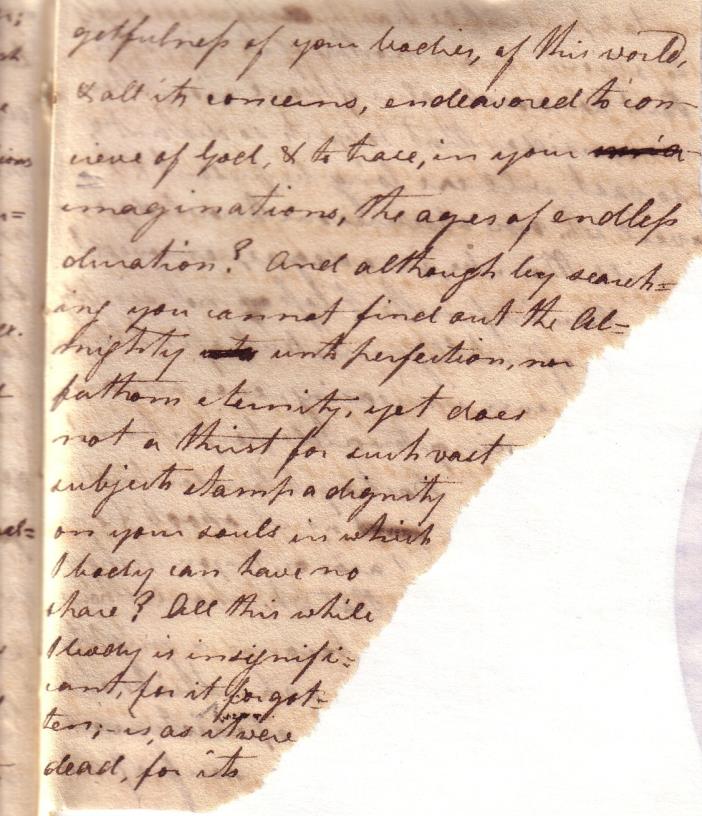 getfulness of your bodies, of this world,
& all its concerns, endeavored to con-
ceive of God, & to trace, in your
imaginations, the ages of endless
duration? And although by search=
ing you cannot find out the Al=
mighty unto perfection, nor
fathom eternity, yet does
not a thirst for such vast
subjects stamp a dignity
on your souls in which
body can have no
share? All this while
body is insignifi=
cant, for it forgot=
ten;- is, as it were
dead, for its